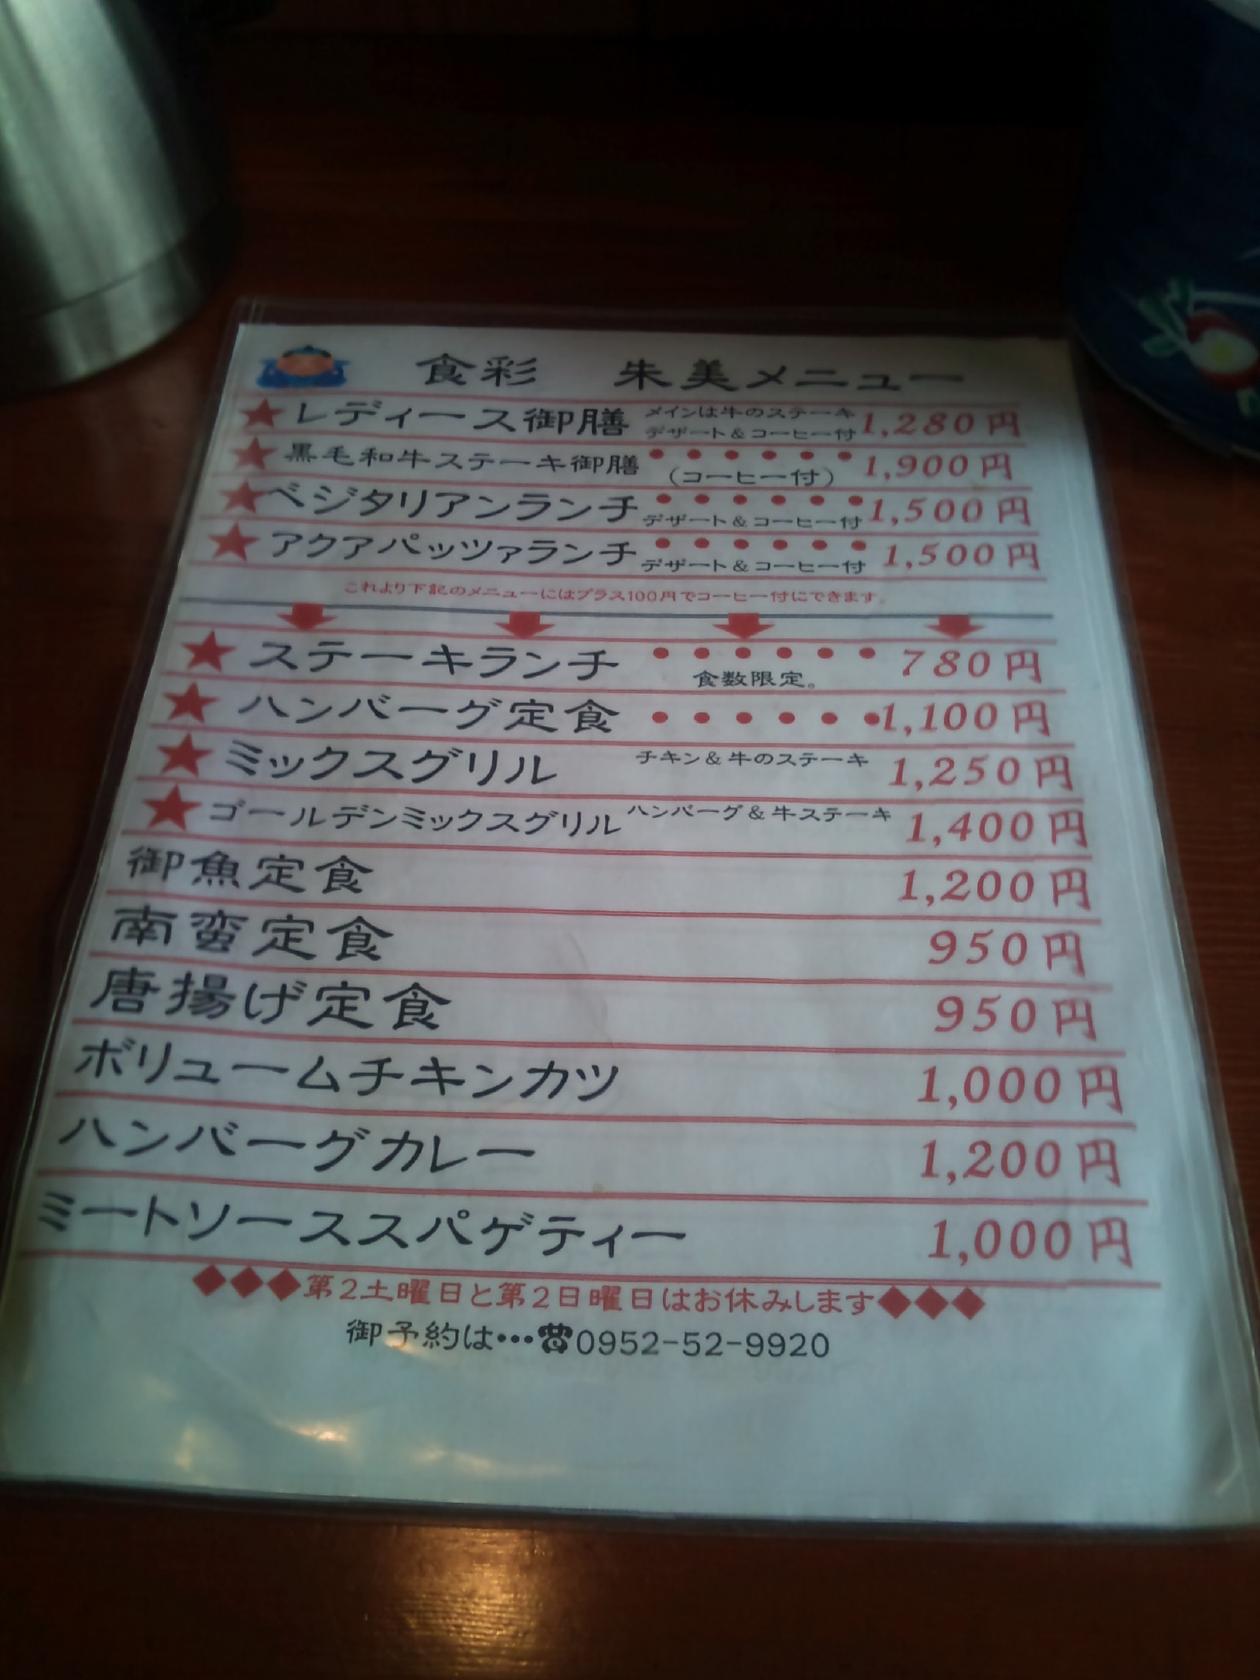 食彩 朱美メニュー
★レディース御膳 メインは牛のステーキ デザート＆コーヒー付 1,280円
★黒毛和牛ステーキ御膳 ●●●●●● （コーヒー付） 1,900円
★ベジタリアンランチ ●●●●●● デザート＆コーヒー付 1,500円
★アクアパッツァランチ ●●●●●● デザート＆コーヒー付 1,500円
これより下記のメニューにはプラス100円でコーヒー付にできます。
★ステーキランチ ●●●●●● 食数限定。 780円
★ハンバーグ定食 ●●●●●● 1,100円
★ミックスグリル チキン＆牛のステーキ 1,250円
★ゴールデンミックスグリル ハンバーグ＆牛ステーキ 1,400円
御魚定食 1,200円
南蛮定食 950円
唐揚げ定食 950円
ボリュームチキンカツ 1,000円
ハンバーグカレー 1,200円
ミートソーススパゲティー 1,000円
◆◆◆第2土曜日と第2日曜日はお休みします◆◆◆
御予約は・・・☎0952-52-9920